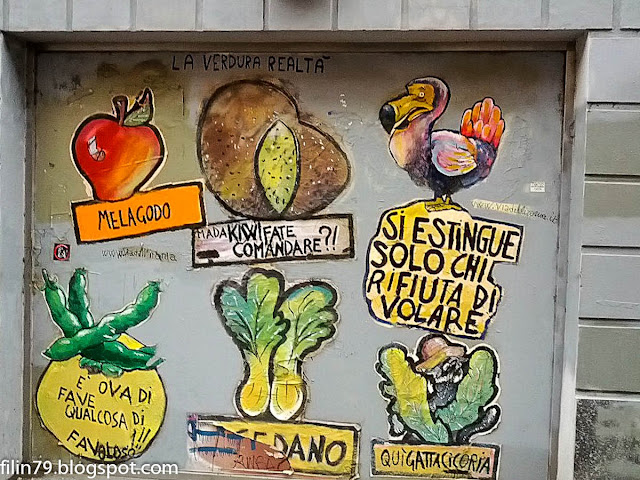 LA VERDURA REALTÀ
MELAGODO
MADA KIWI FATE
COMANDARE?!
SI ESTINGUE
SOLO CHI
RIFIUTA DI
VOLARE
E' OVA DI
FAVE
QUALCOSA DI
FAVOLOSO!!!
EDANO
QUI GATTA CICORIA
filin79.blogspot.com